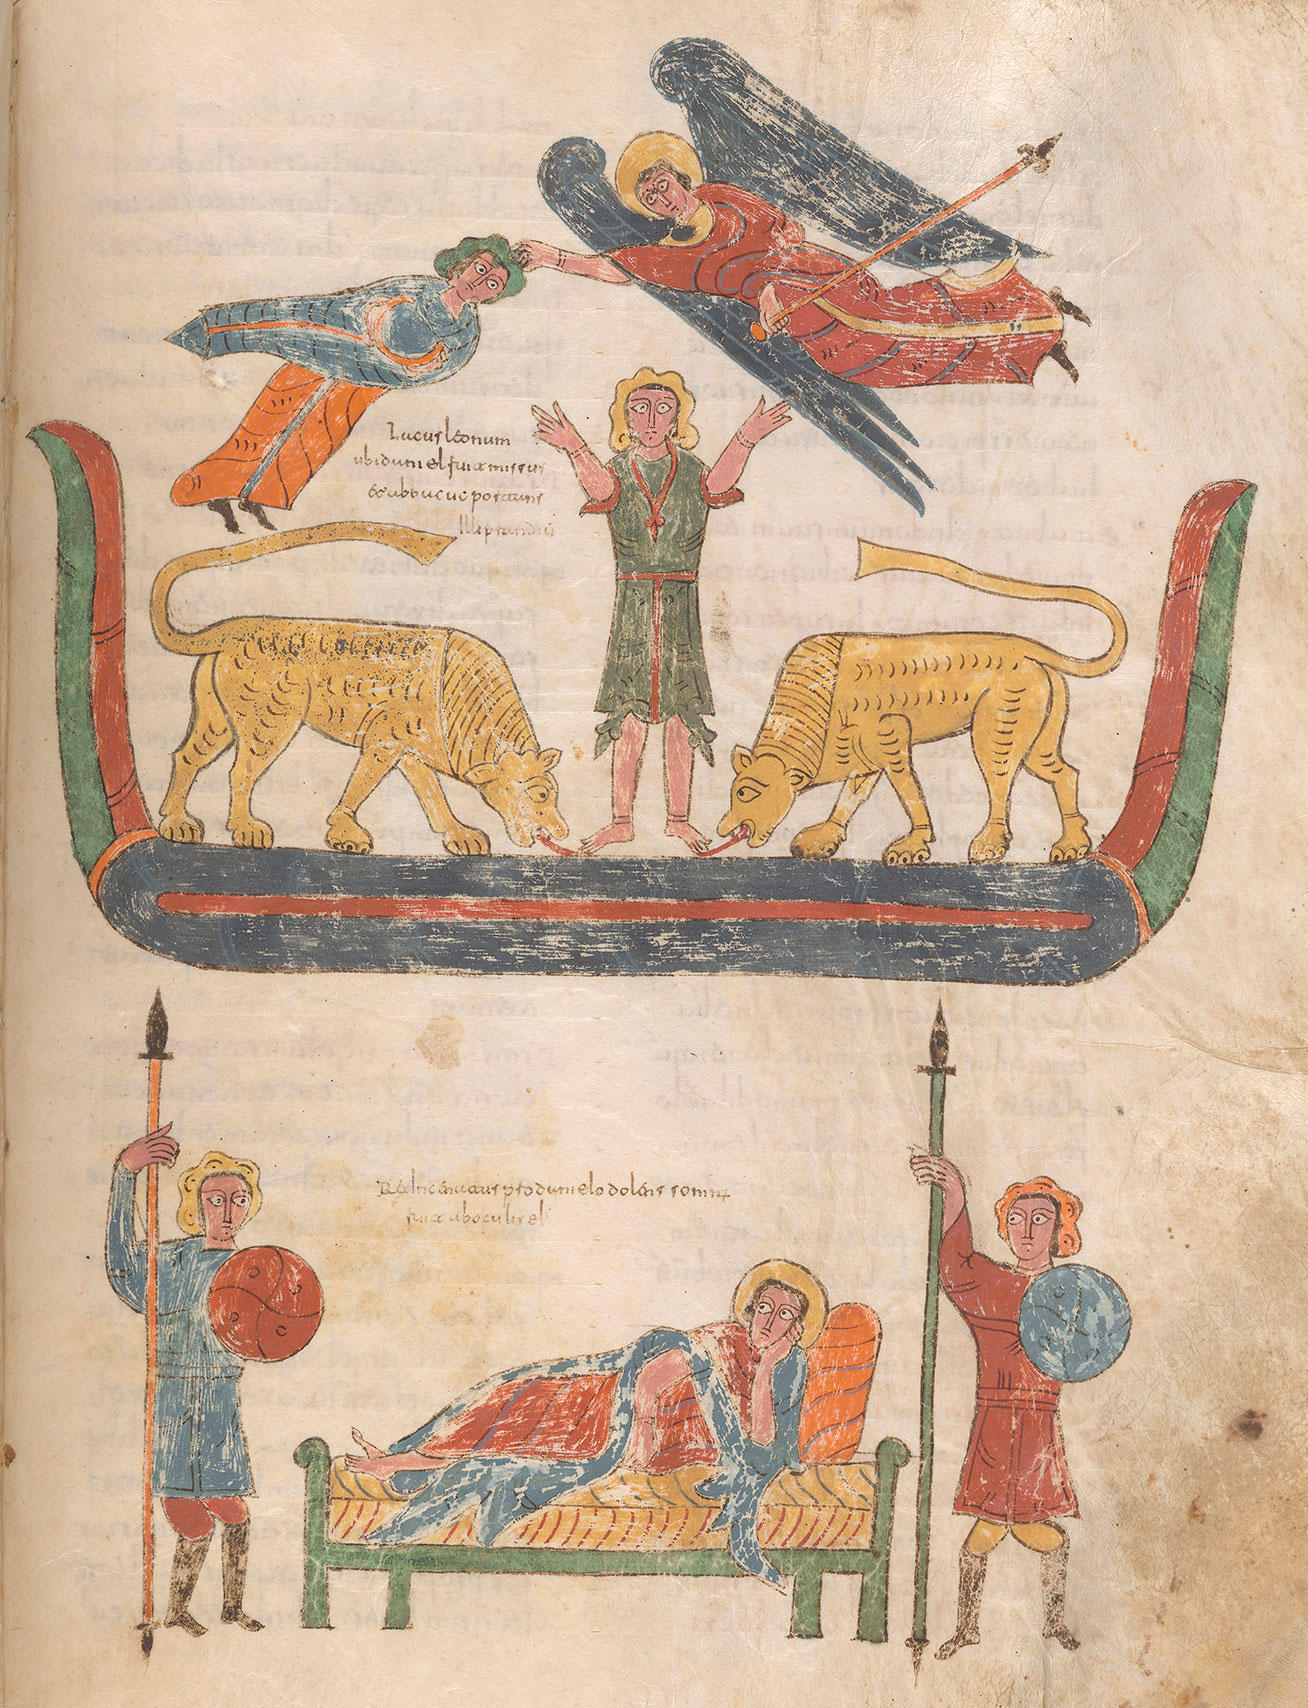 Lacus leonum
ubi daniel fuit missus
& abbacuc portauit
illi prandiū
Rex iacens pro daniele dolens somnus
fuit ab oculis ei